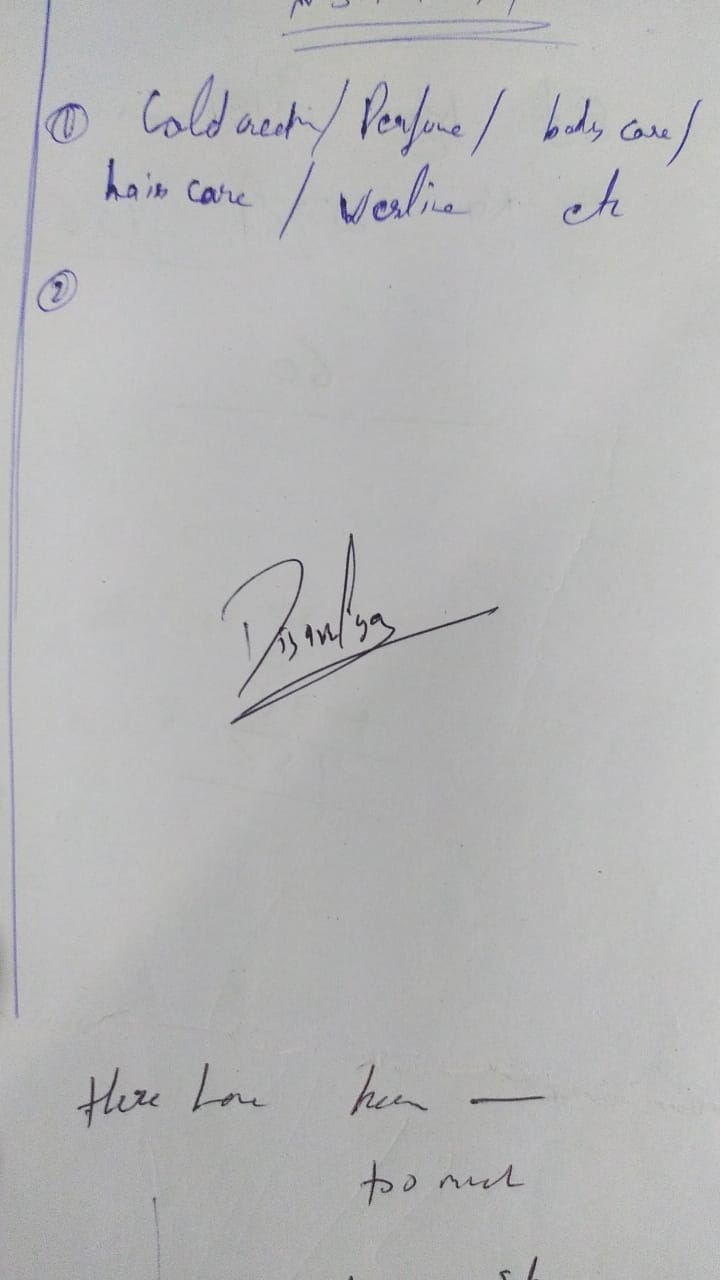 ① Cold cream / Perfume / body care /
hair care / Vesline etc
②
There have been —
too much